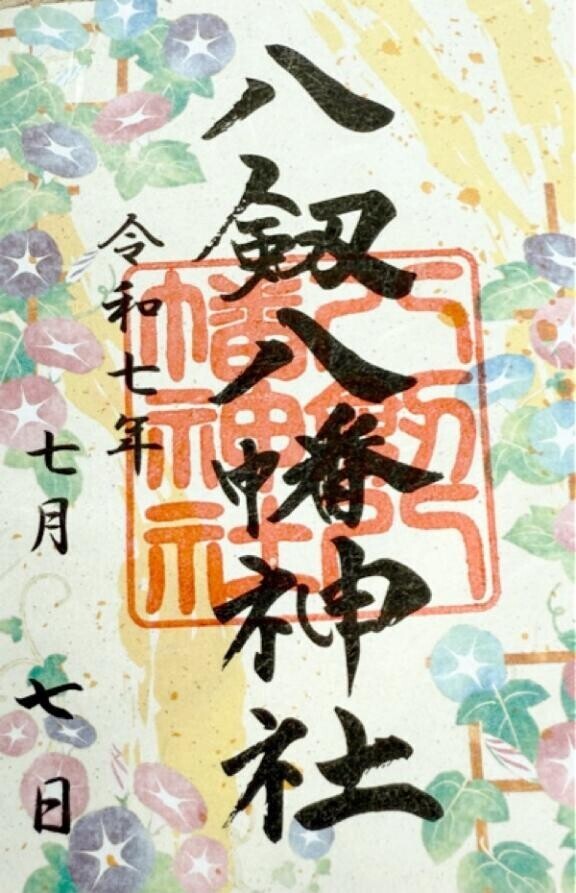 八剱八幡神社
令和七年
七月七日
八剱八
幡神社